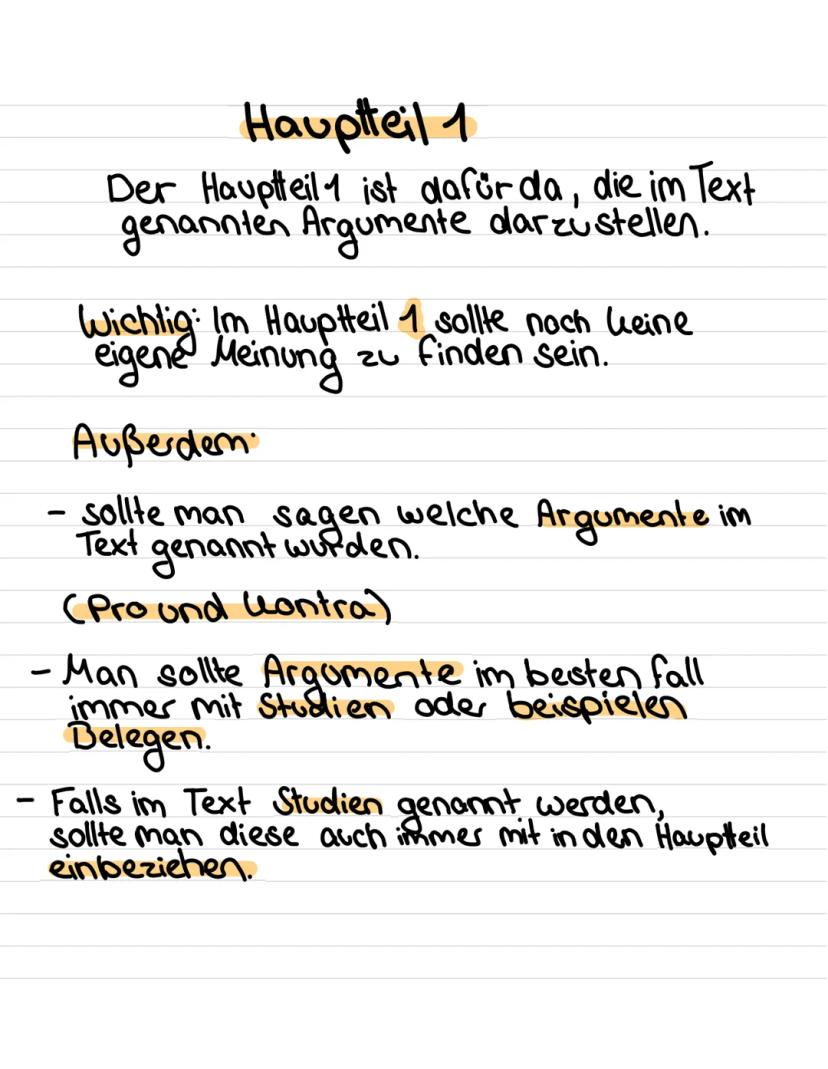 Hauptteil 1
Der Hauptteil 1 ist dafür da, die im Text
genannten Argumente darzustellen.
Wichtig: Im Hauptteil 1 sollte noch keine
eigene Meinung zu finden sein.
Außerdem:
- sollte man sagen welche Argumente im
Text genannt wurden.
(Pro und Kontra)
- Man sollte Argumente im besten fall
immer mit Studien oder beispielen
Belegen.
- Falls im Text Studien genannt werden,
sollte man diese auch immer mit in den Hauptteil
einbeziehen.